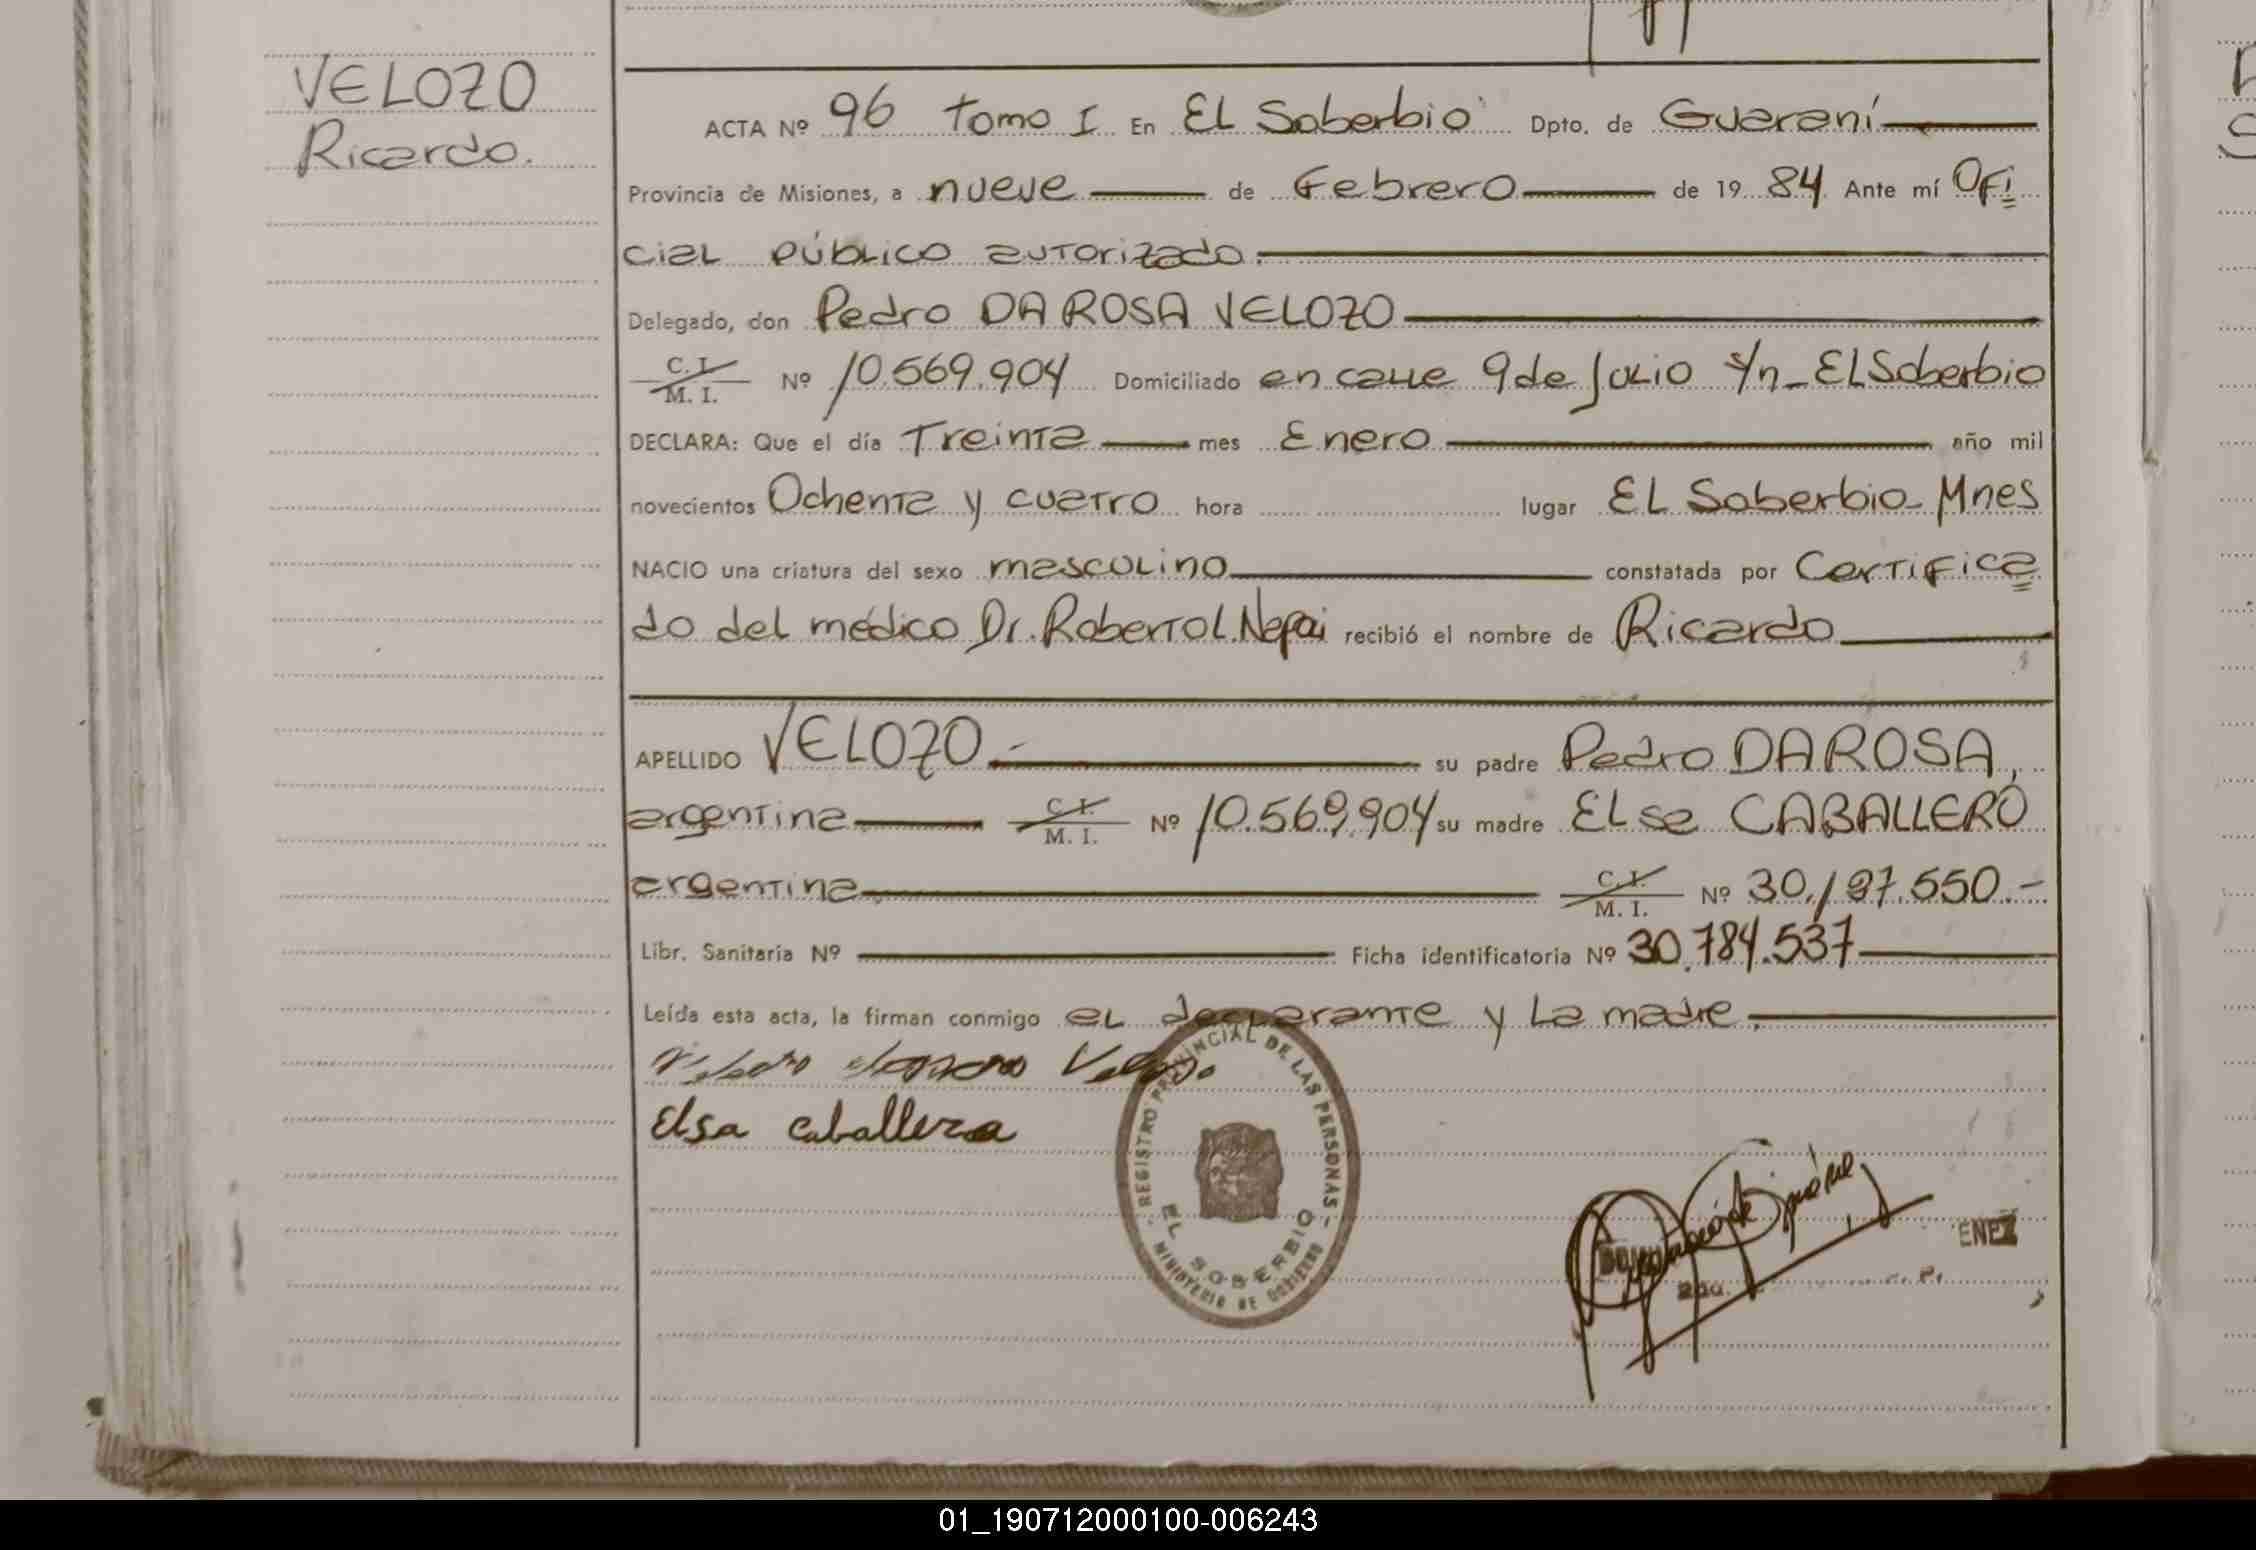 VELOZO
Ricardo.
ACTA Nº 96 Tomo I En EL Soberbio Dpto. de Guaraní
Provincia de Misiones, a nueve de Febrero de 1984 Ante mí Ofi
cial público autorizado.
Delegado, don Pedro DA ROSA VELOZO
C.I. / M. I. Nº 10.569.904 Domiciliado en calle 9 de Julio s/n - EL Soberbio
DECLARA: Que el día Treinta mes Enero año mil
novecientos Ochenta y cuatro hora lugar EL Soberbio - Mnes
NACIO una criatura del sexo masculino constatada por Certifica
do del médico Dr. Roberto L. recibió el nombre de Ricardo
APELLIDO VELOZO.- su padre Pedro DA ROSA,
argentina C.I. / M. I. Nº 10.569.904 su madre Elsa CABALLERO
argentina C.I. / M. I. Nº 30.197.550.-
Libr. Sanitaria Nº Ficha identificatoria Nº 30.784.537
Leída esta acta, la firman conmigo el declarante y La madre.
Elsa Caballero
REGISTRO PROVINCIAL DE LAS PERSONAS
EL SOBERBIO
MINISTERIO DE GOBIERNO
ENEZ
01_190712000100-006243